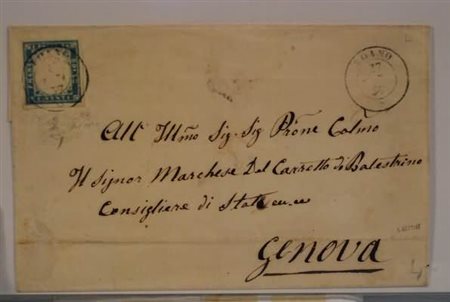 LOANO
All' Illmo Sig. Sig. Prōne Colmo
Il Signor Marchese Del Carretto di Balestrino
Consigliere di Stato
Genova